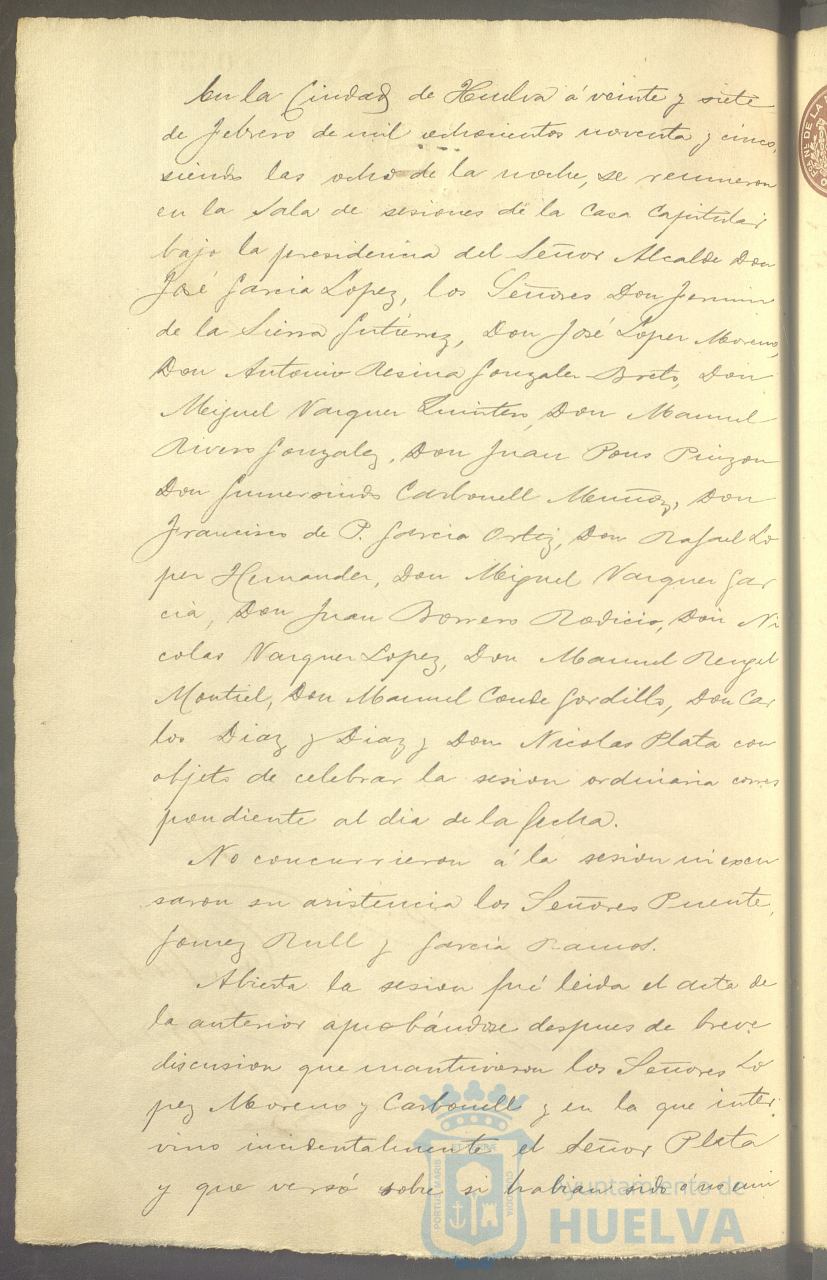 En la Ciudad de Huelva á veinte y siete
de Febrero de mil ochocientos noventa y cinco,
siendo las ocho de la noche, se reunieron
en la Sala de sesiones de la Casa Capitular
bajo la presidencia del Señor Alcalde Don
José Garcia Lopez, los Señores Don Fermin
de la Sierra Gutiérrez, Don José Lopez Moreno,
Don Antonio Resina Gonzalez Brito, Don
Miguel Vazquez Quintero, Don Manuel
Rivero Gonzalez, Don Juan Pons Pinzon
Don Gumersindo Carbonell Muñoz, Don
Francisco de P. Garcia Ortiz, Don Rafael Lo
pez Hernandez, Don Miguel Vazquez Gar
cia, Don Juan Borrero Rodicio, Don Ni
colas Vazquez Lopez, Don Manuel Rengel
Montiel, Don Manuel Conde Gordillo, Don Car
los Diaz y Diaz y Don Nicolas Plata con
objeto de celebrar la sesion ordinaria corres
pondiente al dia de la fecha.
No concurrieron á la sesion ni excu
saron su asistencia los Señores Puente,
Gomez Rull y Garcia Ramos.
Abierta la sesion fué leida el acta de
la anterior aprobándose despues de breve
discusion que mantuvieron los Señores Lo
pez Moreno y Carbonell y en la que inter
vino incidentalmente el Señor Plata
y que versó sobre si habian sido ó no
Ayuntamiento de
HUELVA
PORTUS MARIS